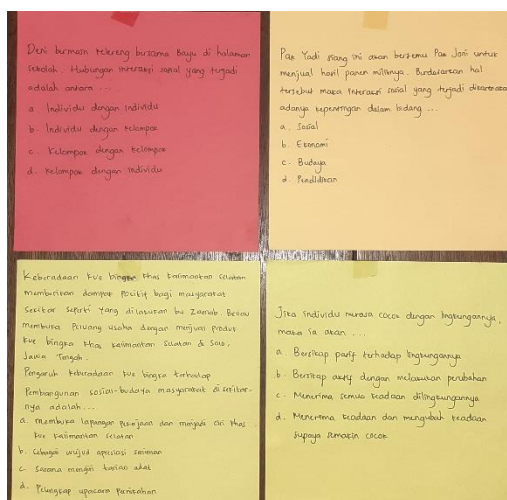 Deni bermain kelereng bersama Bayu di halaman
sekolah. Hubungan interaksi sosial yang terjadi
adalah antara ...
a. Individu dengan individu
b. Individu dengan kelompok
c. Kelompok dengan kelompok
d. Kelompok dengan individu
Pak Yadi siang ini akan bertemu Pak Joni untuk
menjual hasil panen miliknya. Berdasarkan hal
tersebut maka interaksi sosial yang terjadi dikarenakan
adanya kepentingan dalam bidang ...
a. Sosial
b. Ekonomi
c. Budaya
d. Pendidikan
Keberadaan kue bingka khas Kalimantan Selatan
memberikan dampak positif bagi masyarakat
sekitar seperti yang dilakukan bu Zaenab. Beliau
membuka peluang usaha dengan menjual produk
kue bingka khas Kalimantan Selatan di Solo,
Jawa Tengah.
Pengaruh keberadaan kue bingka terhadap
Pembangunan sosial-budaya masyarakat di sekitar-
nya adalah ...
a. membuka lapangan pekerjaan dan menjadi ciri khas
kue Kalimantan Selatan
b. Sebagai wujud apresiasi seniman
c. Sarana mengiri tarian adat
d. Pelengkap upacara pernikahan
Jika individu merasa cocok dengan lingkungannya,
maka ia akan ...
a. Bersikap pasif terhadap lingkungannya
b. Bersikap aktif dengan melakukan perubahan
c. Menerima semua keadaan dilingkungannya
d. Menerima keadaan dan mengubah keadaan
supaya semakin cocok